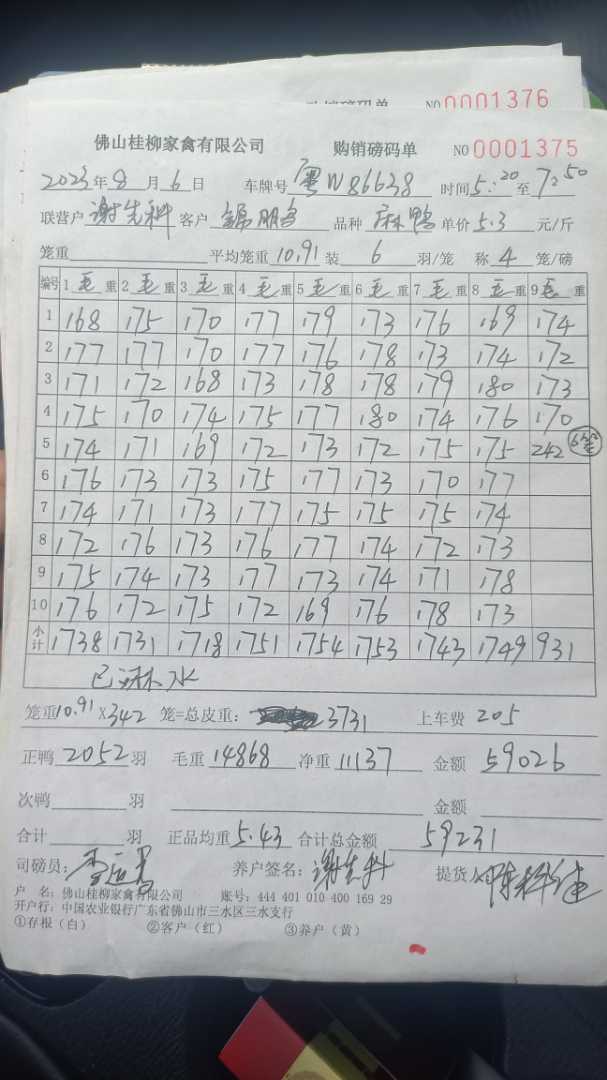 NO 0001376
佛山桂柳家禽有限公司 购销磅码单 NO 0001375
2023年8月6日 车牌号 粤W86638 时间5:20至7:50
联营户 谢先科 客户 品种 麻鸭 单价5.3元/斤
笼重 平均笼重10.91装6羽/笼 称4笼/磅
编号 1毛重 2毛重 3毛重 4毛重 5毛重 6毛重 7毛重 8毛重 9毛重
1 168 175 170 177 179 173 176 169 174
2 177 177 170 177 176 178 173 174 172
3 171 172 168 173 178 178 179 180 173
4 175 170 174 175 177 180 174 176 170
5 174 171 169 172 173 172 175 175 242 6笼
6 176 173 173 175 177 173 170 177
7 174 171 173 177 175 175 175 174
8 172 176 173 176 177 174 172 173
9 175 174 173 177 173 174 171 178
10 176 172 175 172 169 176 178 173
小计 1738 1731 1718 1751 1754 1753 1743 1749 931
已淋水
笼重10.91×342笼=总皮重：3731 上车费 205
正鸭2052羽 毛重14868净重11137 金额59026
次鸭 羽 金额
合计 羽 正品均重5.43合计总金额59231
司磅员： 养户签名：谢先科 提货人
户 名：佛山桂柳家禽有限公司 账号：444 401 010 400 169 29
开户行：中国农业银行广东省佛山市三水区三水支行
①存根（白） ②客户（红） ③养户（黄）